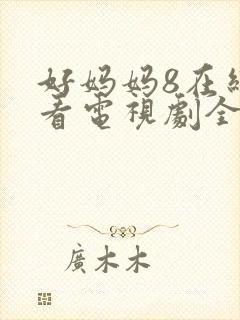 好妈妈8在纟
看電視劇全
廣木木